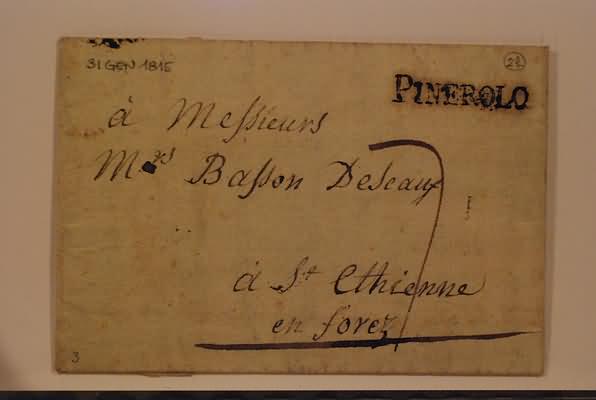 31 GEN 1815
28
PINEROLO
à Messieurs
Mrs Basson Deseaux
à St Ethienne
en forez
7
3